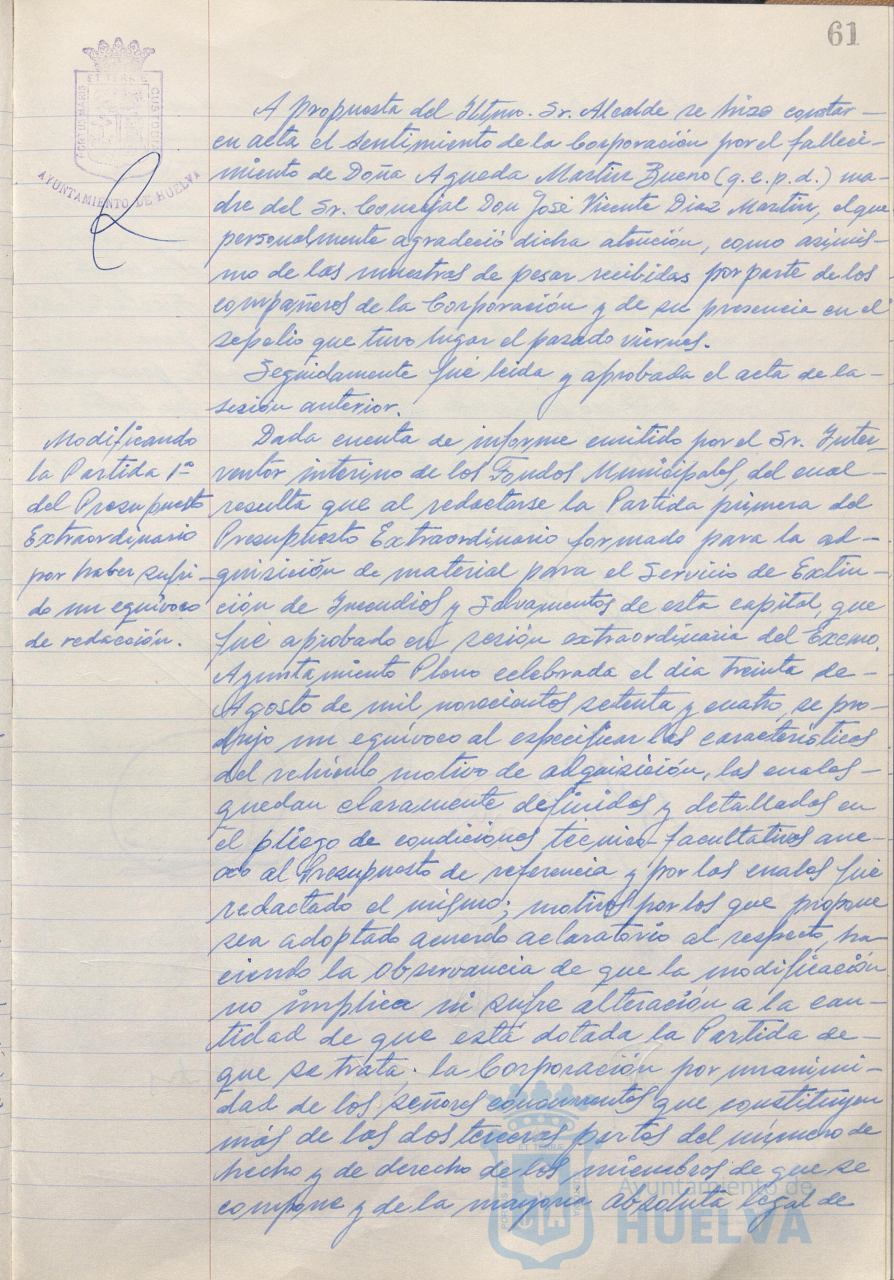 61
PORTUS MARIS
ET TERRE
CUSTODIA
AYUNTAMIENTO DE HUELVA
A propuesta del Iltmo. Sr. Alcalde se hizo constar
en acta el sentimiento de la Corporación por el falleci-
miento de Doña Agueda Martín Bueno (q.e.p.d.) ma-
dre del Sr. Concejal Don José Vicente Diaz Martin, el que
personalmente agradeció dicha atención, como asimis-
mo de las muestras de pesar recibidas por parte de los
compañeros de la Corporación y de su presencia en el
sepelio que tuvo lugar el pasado viernes.
Seguidamente fué leida y aprobada el acta de la
sesión anterior.
Modificando
la Partida 1ª
del Presupuesto
Extraordinario
por haber sufri-
do un equívoco
de redacción.
Dada cuenta de informe emitido por el Sr. Inter-
ventor interino de los Fondos Municipales, del cual
resulta que al redactarse la Partida primera del
Presupuesto Extraordinario formado para la ad-
quisición de material para el Servicio de Extin-
ción de Incendios y Salvamentos de esta capital, que
fué aprobado en sesión extraordinaria del Excmo.
Ayuntamiento Pleno celebrada el dia treinta de
Agosto de mil novecientos setenta y cuatro, se pro-
dujo un equívoco al especificar las características
del vehículo motivo de adquisición, las cuales
quedan claramente definidas y detalladas en
el pliego de condiciones técnico-facultativas ane-
xo al Presupuesto de referencia y por las cuales fué
redactado el mismo; motivos por los que propone
sea adoptado acuerdo aclaratorio al respecto, ha-
ciendo la observancia de que la modificación
no implica ni sufre alteración a la can-
tidad de que está dotada la Partida de
que se trata; la Corporación por unanimi-
dad de los señores concurrentes que constituyen
más de las dos terceras partes del número de
hecho y de derecho de los miembros de que se
compone y de la mayoría absoluta legal de
Ayuntamiento de
HUELVA